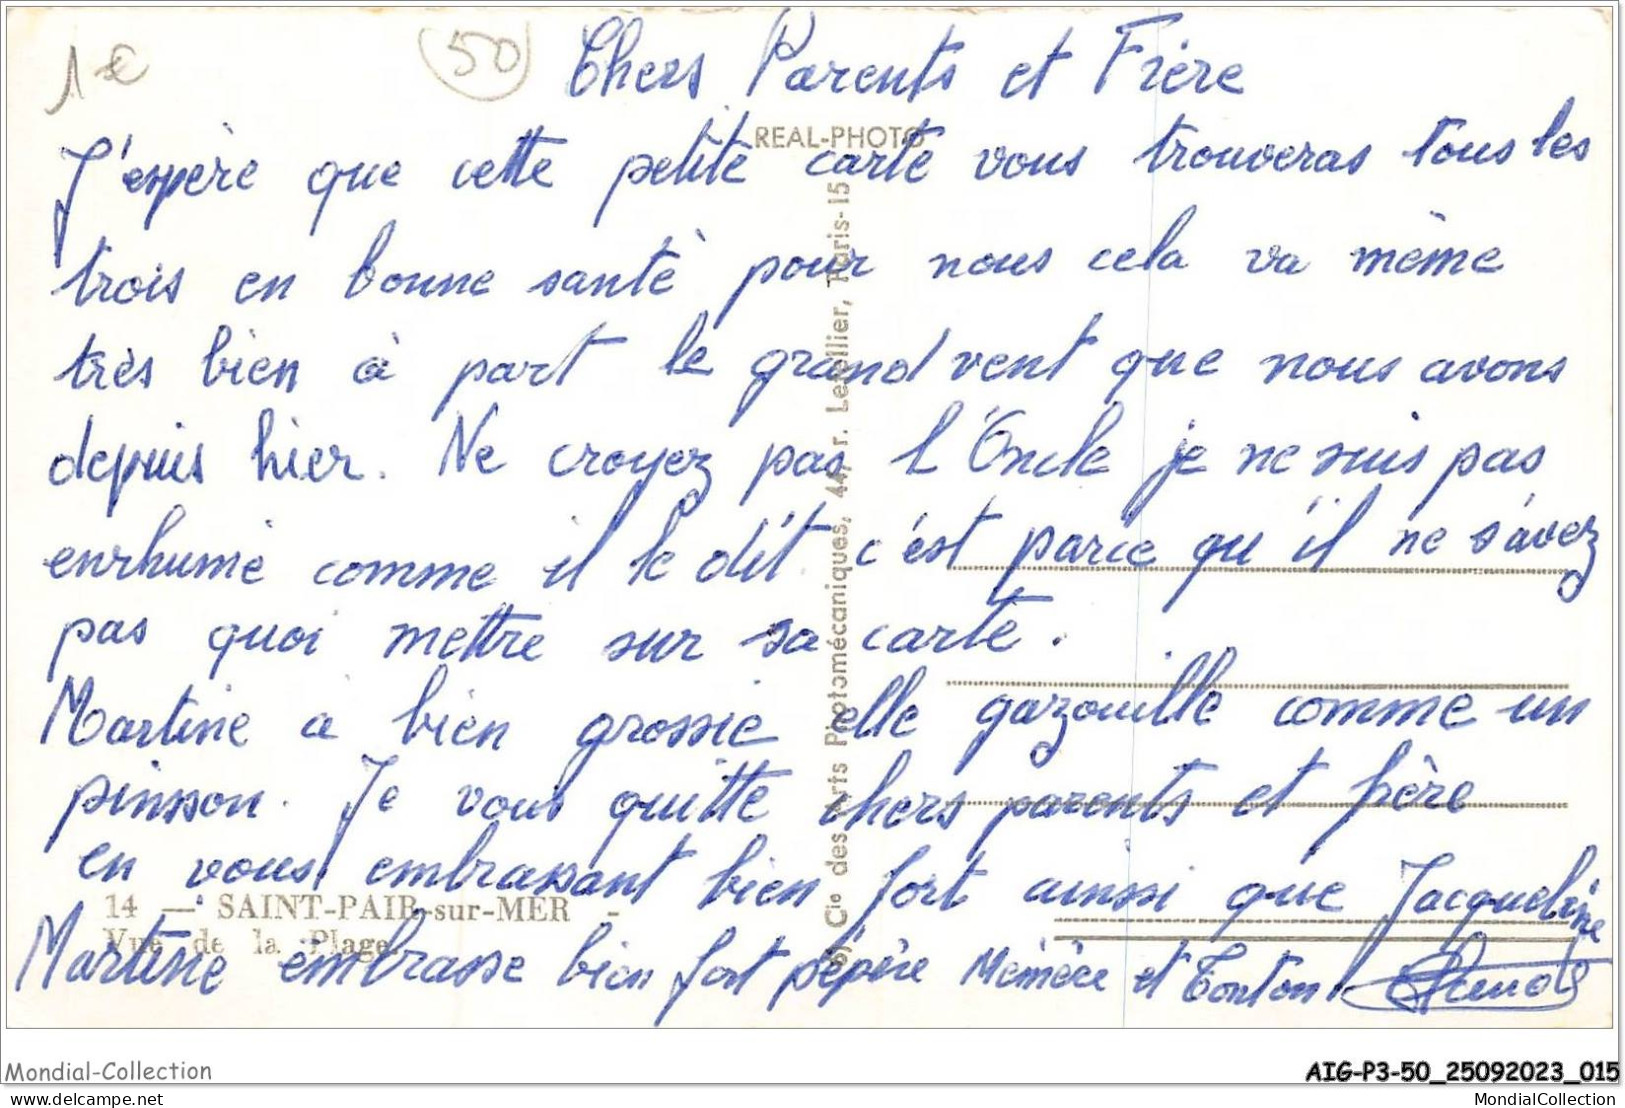 1 €
50
Chers Parents et Frère
REAL-PHOTO
J'espère que cette petite carte vous trouveras tous les
trois en bonne santé pour nous cela va même
très bien à part le grand vent que nous avons
depuis hier. Ne croyez pas l'Oncle je ne suis pas
enrhumé comme il le dit c'est parce qu'il ne s'avez
pas quoi mettre sur sa carte.
Martine à bien grossie elle gazouille comme un
pinsson. Je vous quitte chers parents et frère
en vous embrassant bien fort ainsi que Jacqueline
Martine embrasse bien fort pépère Mémère et Tonton
14 — SAINT-PAIR-sur-MER -
Vue de la Plage
Cie des Arts Photomécaniques, 44, r. Letellier, Paris-15
Mondial-Collection
AIG-P3-50_25092023_015
mondial-collection
MondialCollection